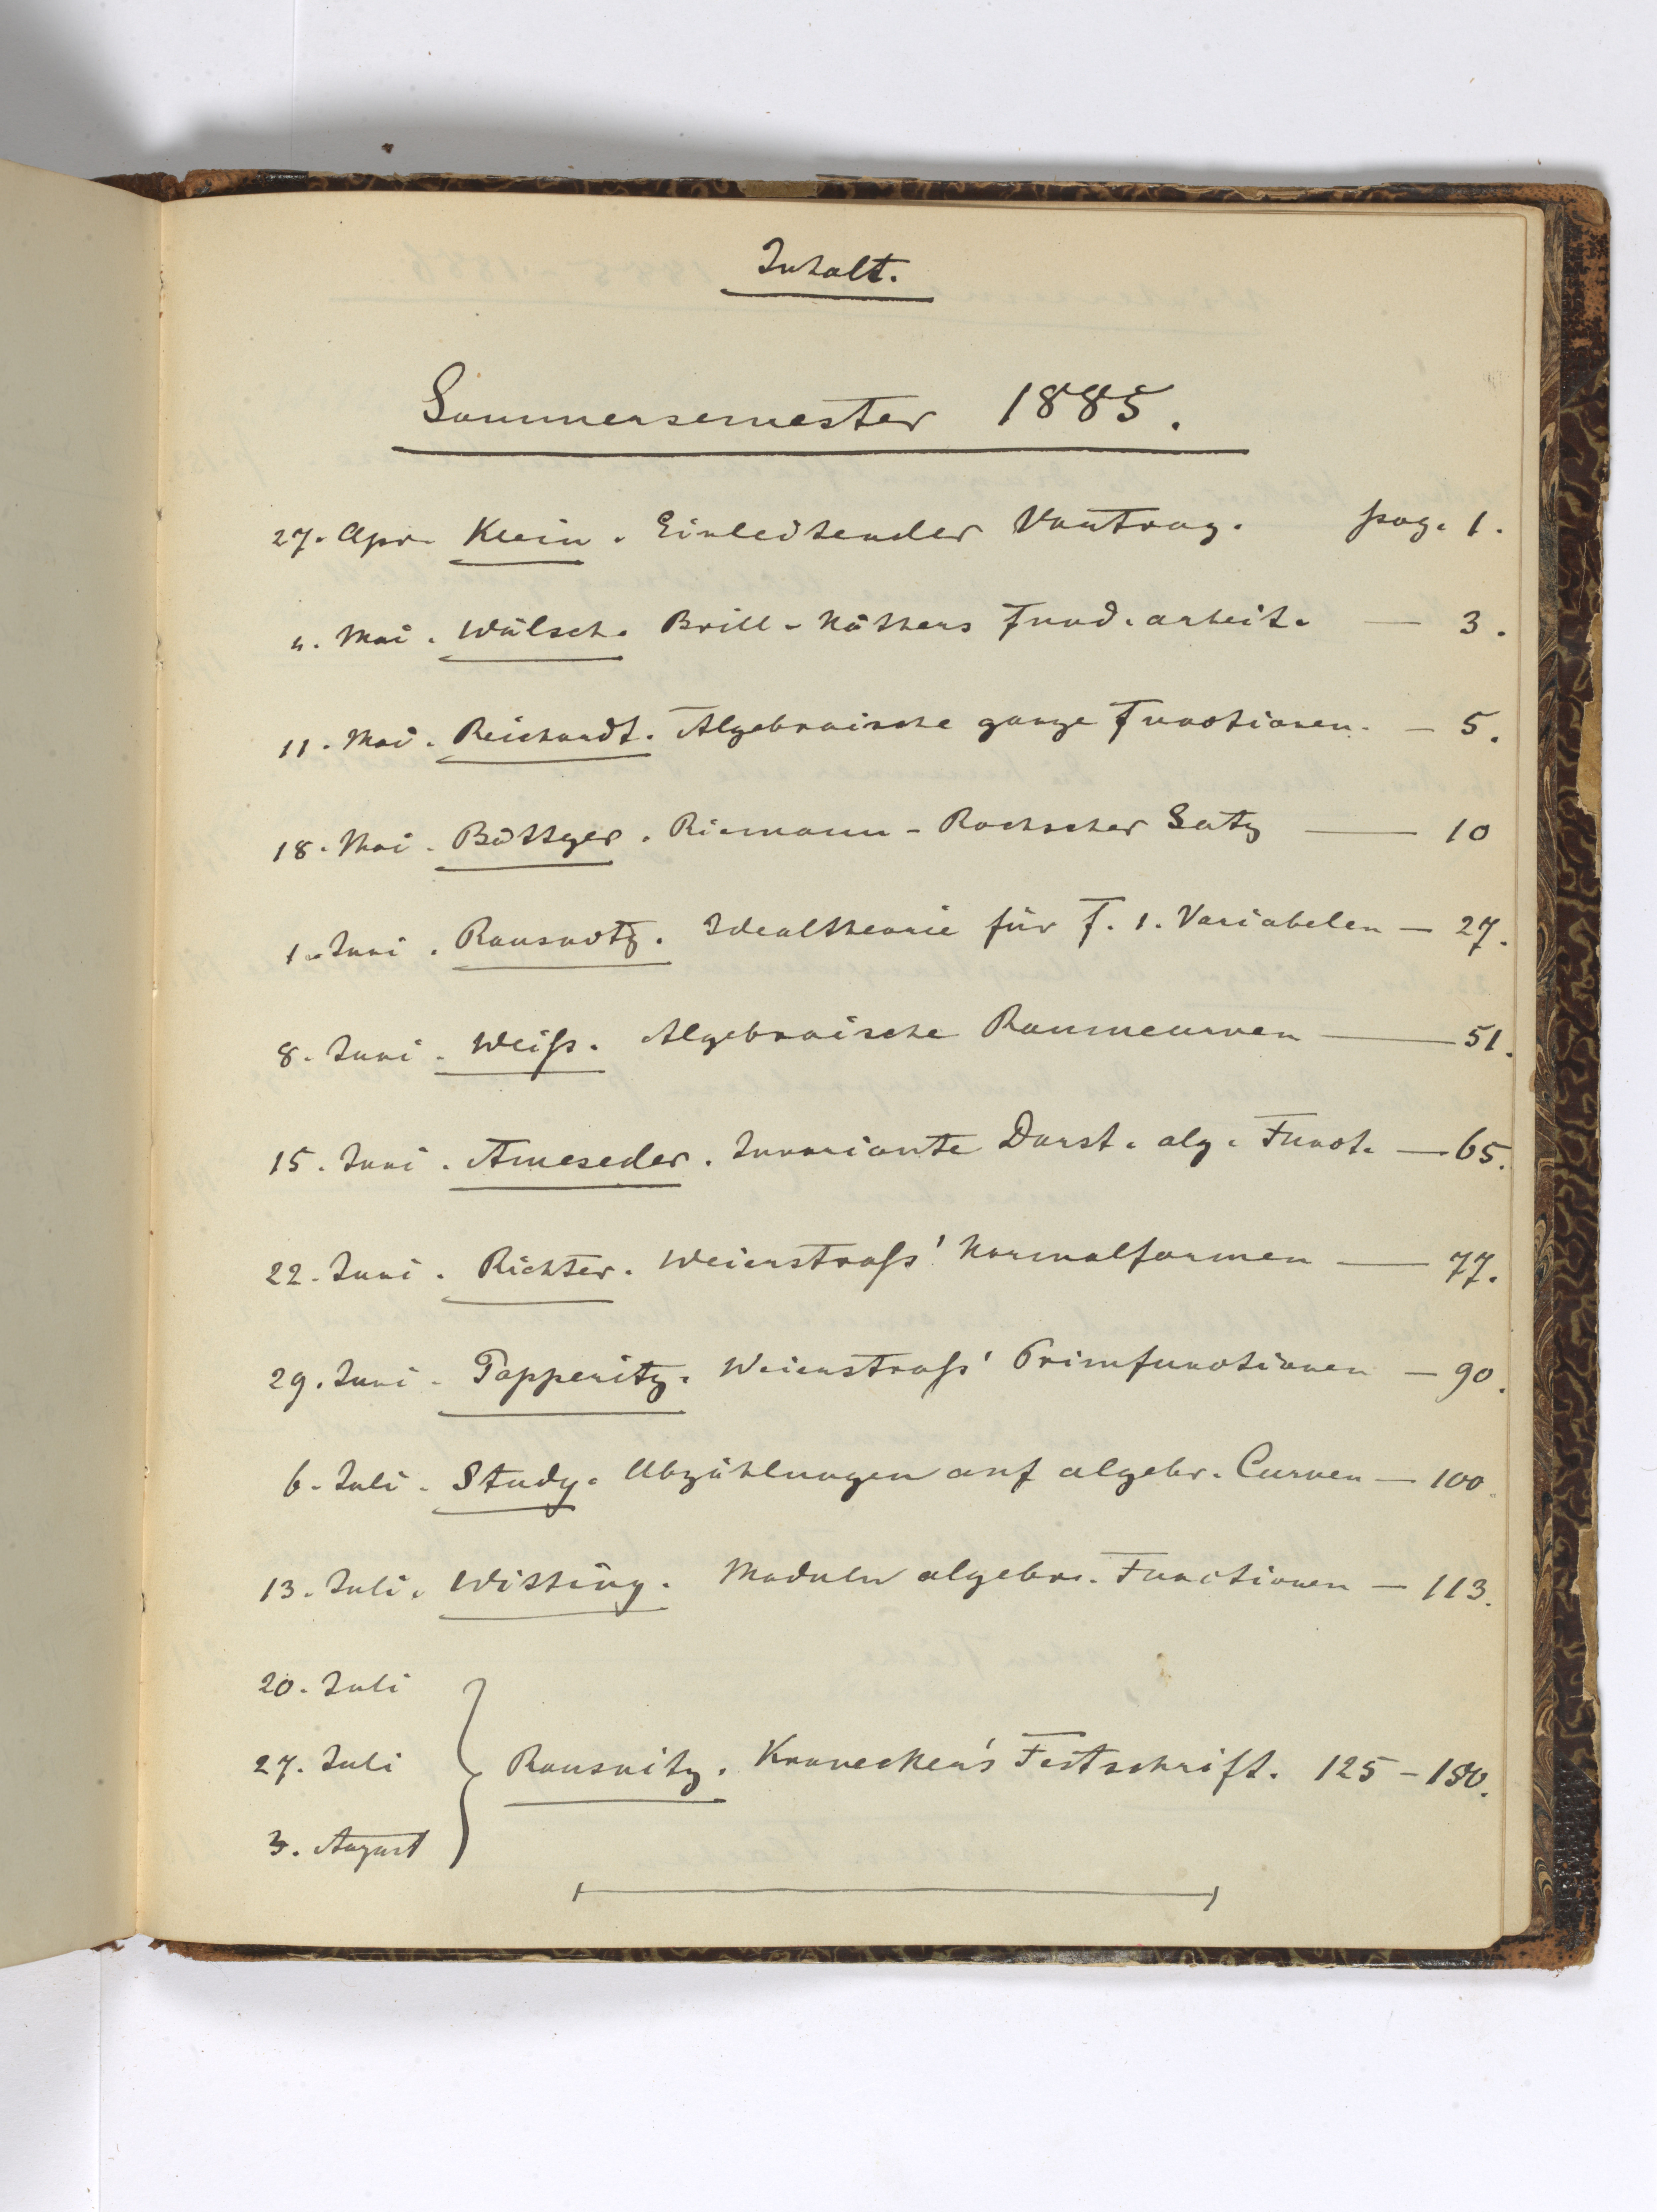 Inhalt.
Sommersemester 1885.
27. Apr. Klein. Einleitender Vortrag. pag. 1.
4. Mai. Wälsch. Brill-Nöthers Fund.arbeit. — 3.
11. Mai. Reichardt. Algebraische ganze Functionen. — 5.
18. Mai. Böttger. Riemann-Rochscher Satz — 10
1. Juni. Rausnitz. Idealtheorie für F. 1. Variabelen — 27.
8. Juni. Weiß. Algebraische Raumcurven — 51.
15. Juni. Ameseder. Invariante Darst. alg. Funct. — 65.
22. Juni. Richter. Weierstraß' Normalformen — 77.
29. Juni. Papperitz. Weierstraß' Primfunctionen — 90.
6. Juli. Study. Abzählungen auf algebr. Curven — 100.
13. Juli. Witting. Moduln algebr. Functionen — 113.
20. Juli
27. Juli Rausnitz. Kronecker's Festschrift. 125 –
3. August